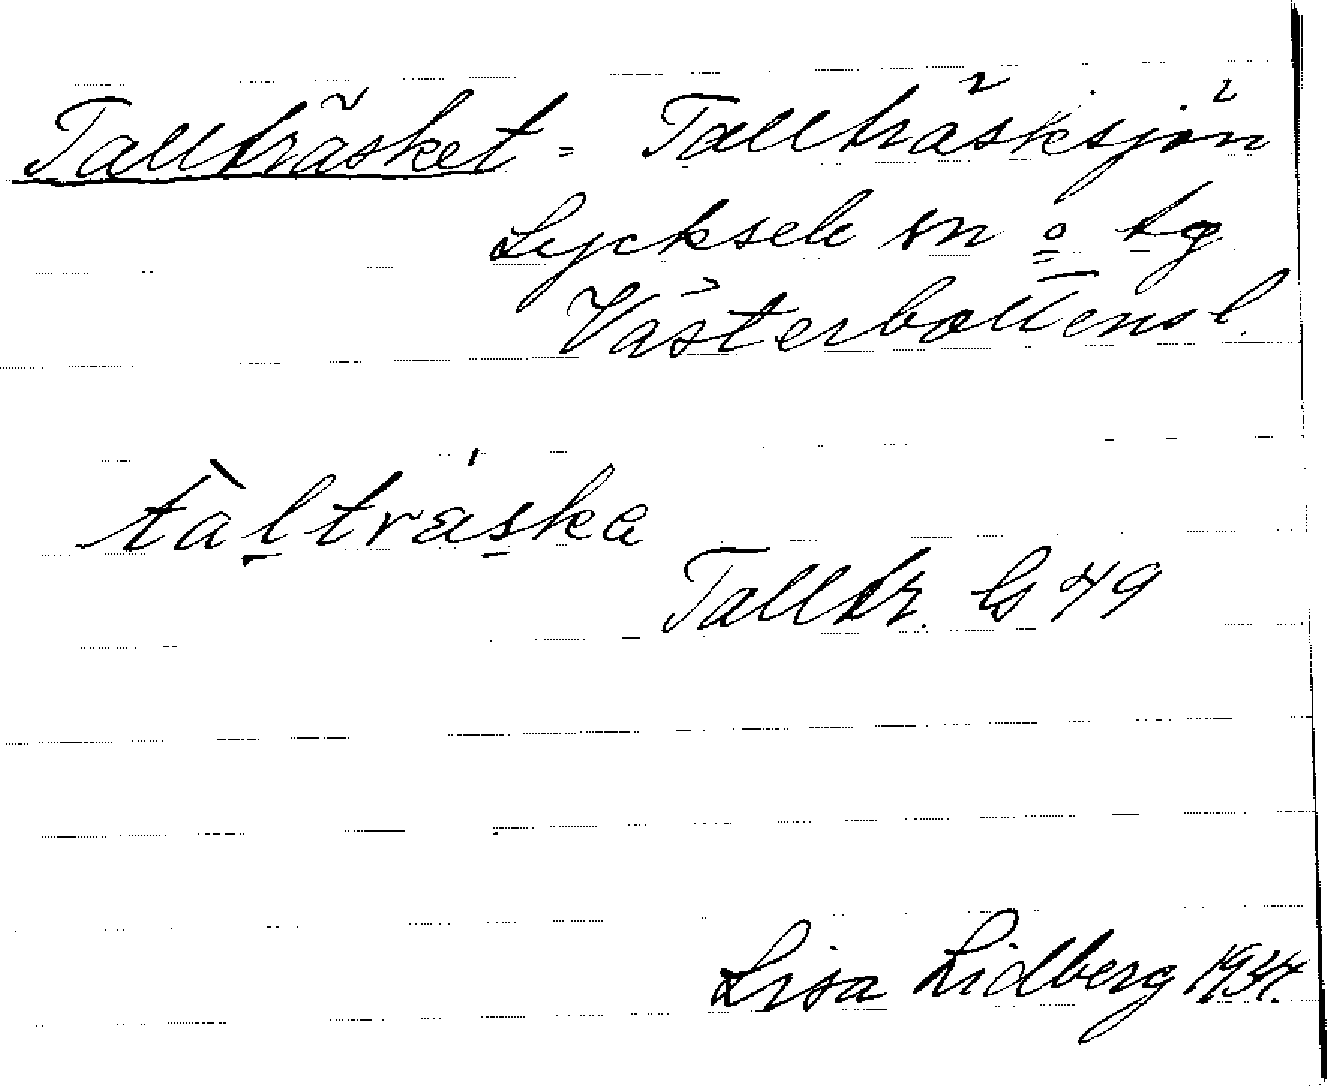 Tallträsket = Tallträsksjön
Lycksele sn o tg
Västerbottensl.
tàltráska
Talltr. G 49
Lisa Lidberg 1934.